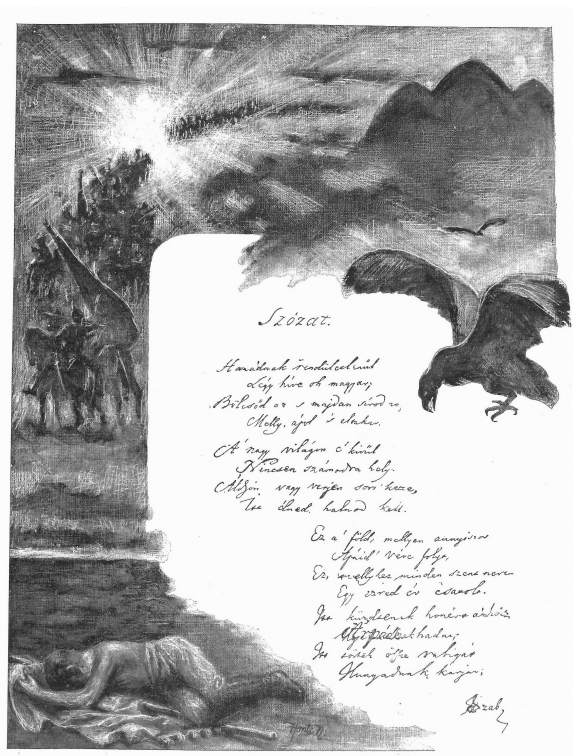 Szózat.
Hazádnak rendületlenűl
Légy híve oh magyar;
Bölcsőd az s majdan sírod is,
Melly ápol s eltakar.
A' nagy világon e' kivűl
Nincsen számodra hely.
Áldjon vagy verjen sors keze,
Itt élned halnod kell.
Ez a' föld, mellyen annyiszor
Apáid' vére folyt,
Ez, mellyhez minden szent nevet
Egy ezred év csatolt.
Itt küzdtenek honért a' hős
Árpádnak hadai;
Itt törtek össze rabigát
Hunyadnak karjai;